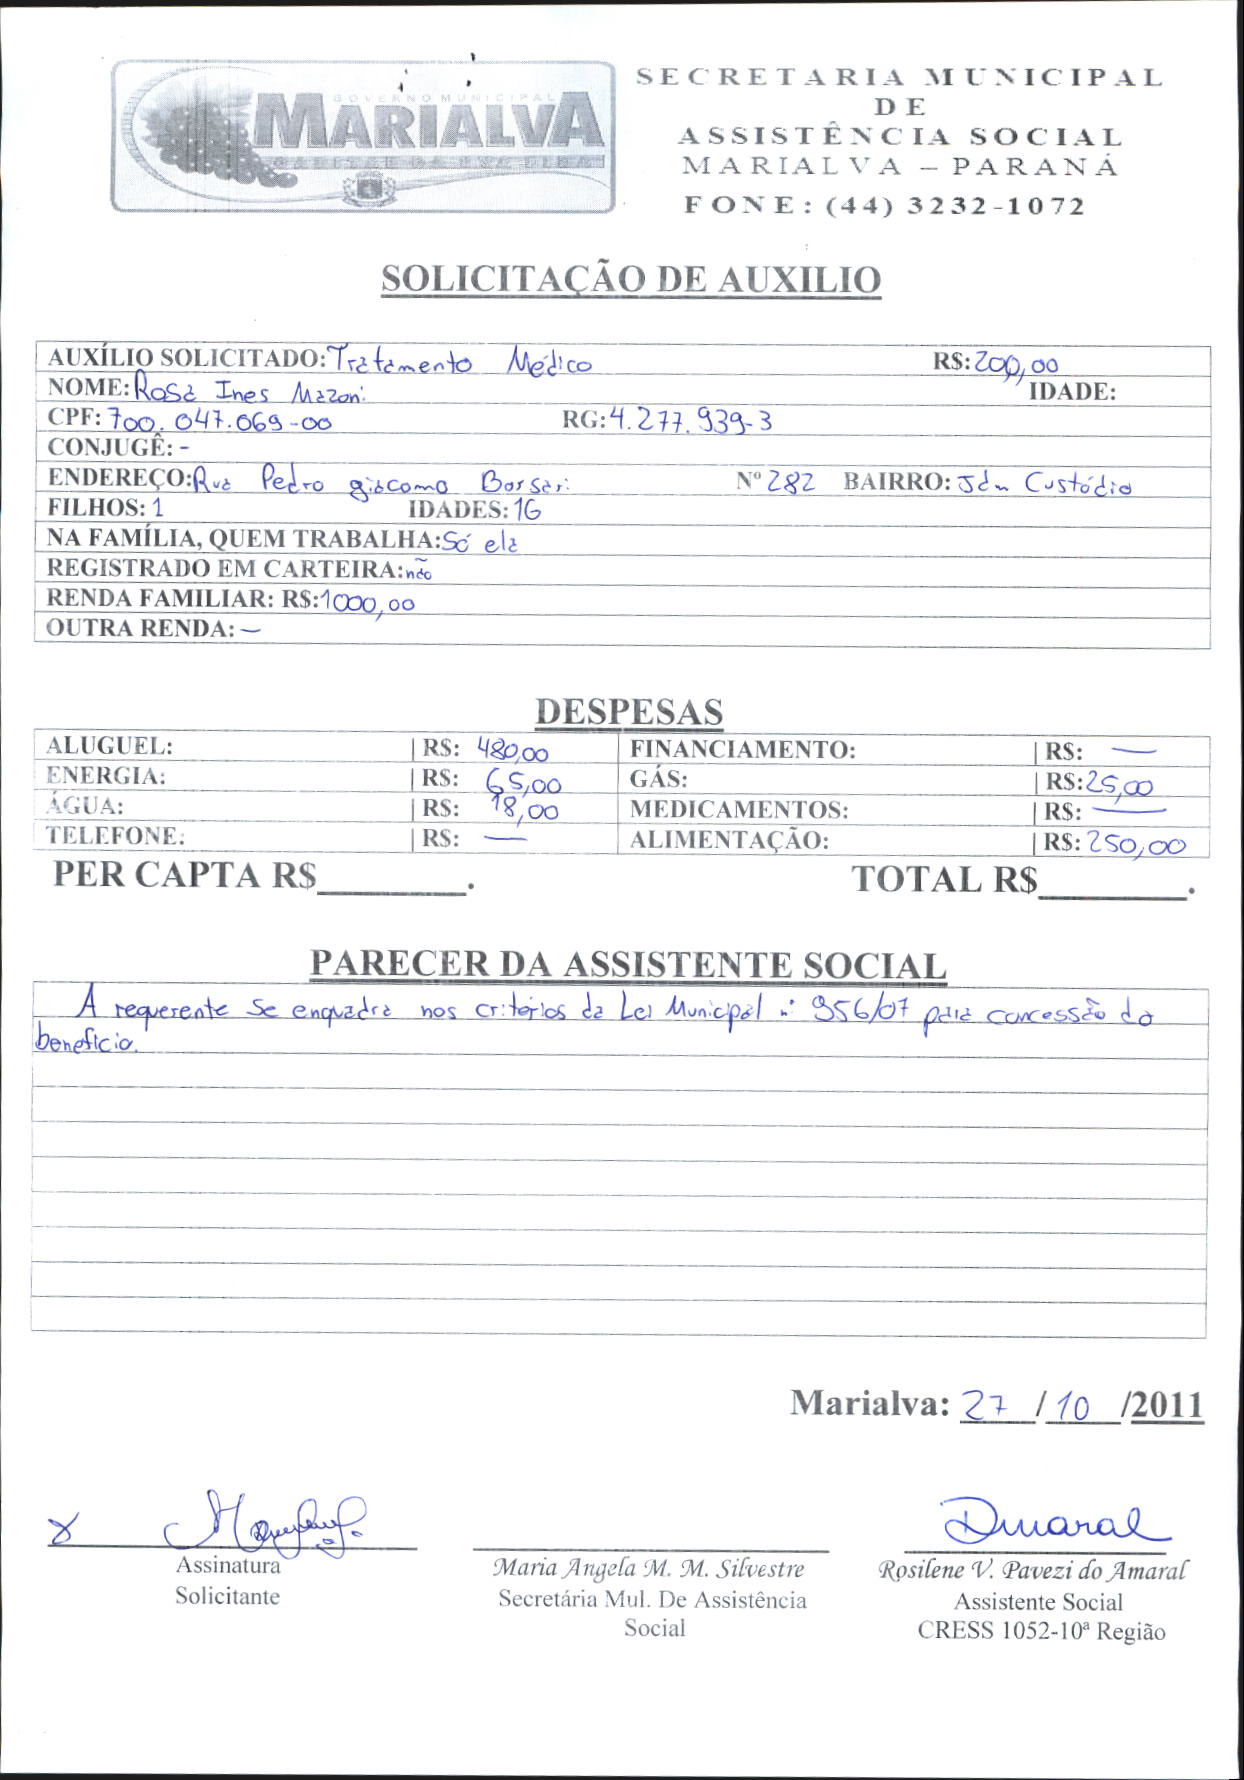 GOVERNO MUNICIPAL
MARIALVA
CAPITAL DA UVA FINA
SECRETARIA MUNICIPAL
DE
ASSISTÊNCIA SOCIAL
MARIALVA – PARANÁ
FONE: (44) 3232-1072
SOLICITAÇÃO DE AUXILIO
AUXÍLIO SOLICITADO: Tratamento Médico R$: 200,00
NOME: Rosa Ines Mazoni IDADE:
CPF: 700.047.069-00 RG: 4.277.939-3
CONJUGÊ: -
ENDEREÇO: Rua Pedro giacomo Borsari Nº 282 BAIRRO: Jdm Custódio
FILHOS: 1 IDADES: 16
NA FAMÍLIA, QUEM TRABALHA: Só ela
REGISTRADO EM CARTEIRA: não
RENDA FAMILIAR: R$: 1000,00
OUTRA RENDA: —
DESPESAS
ALUGUEL: | R$: 480,00 FINANCIAMENTO: | R$: —
ENERGIA: | R$: 65,00 GÁS: | R$: 25,00
ÁGUA: | R$: 18,00 MEDICAMENTOS: | R$: —
TELEFONE: | R$: — ALIMENTAÇÃO: | R$: 250,00
PER CAPTA R$________. TOTAL R$________.
PARECER DA ASSISTENTE SOCIAL
A requerente se enquadra nos critérios da Lei Municipal nº 956/07 para concessão do
benefício.
Marialva: 27 / 10 /2011
Amaral
Assinatura Maria Angela M. M. Silvestre Rosilene V. Pavezi do Amaral
Solicitante Secretária Mul. De Assistência Assistente Social
Social CRESS 1052-10ª Região